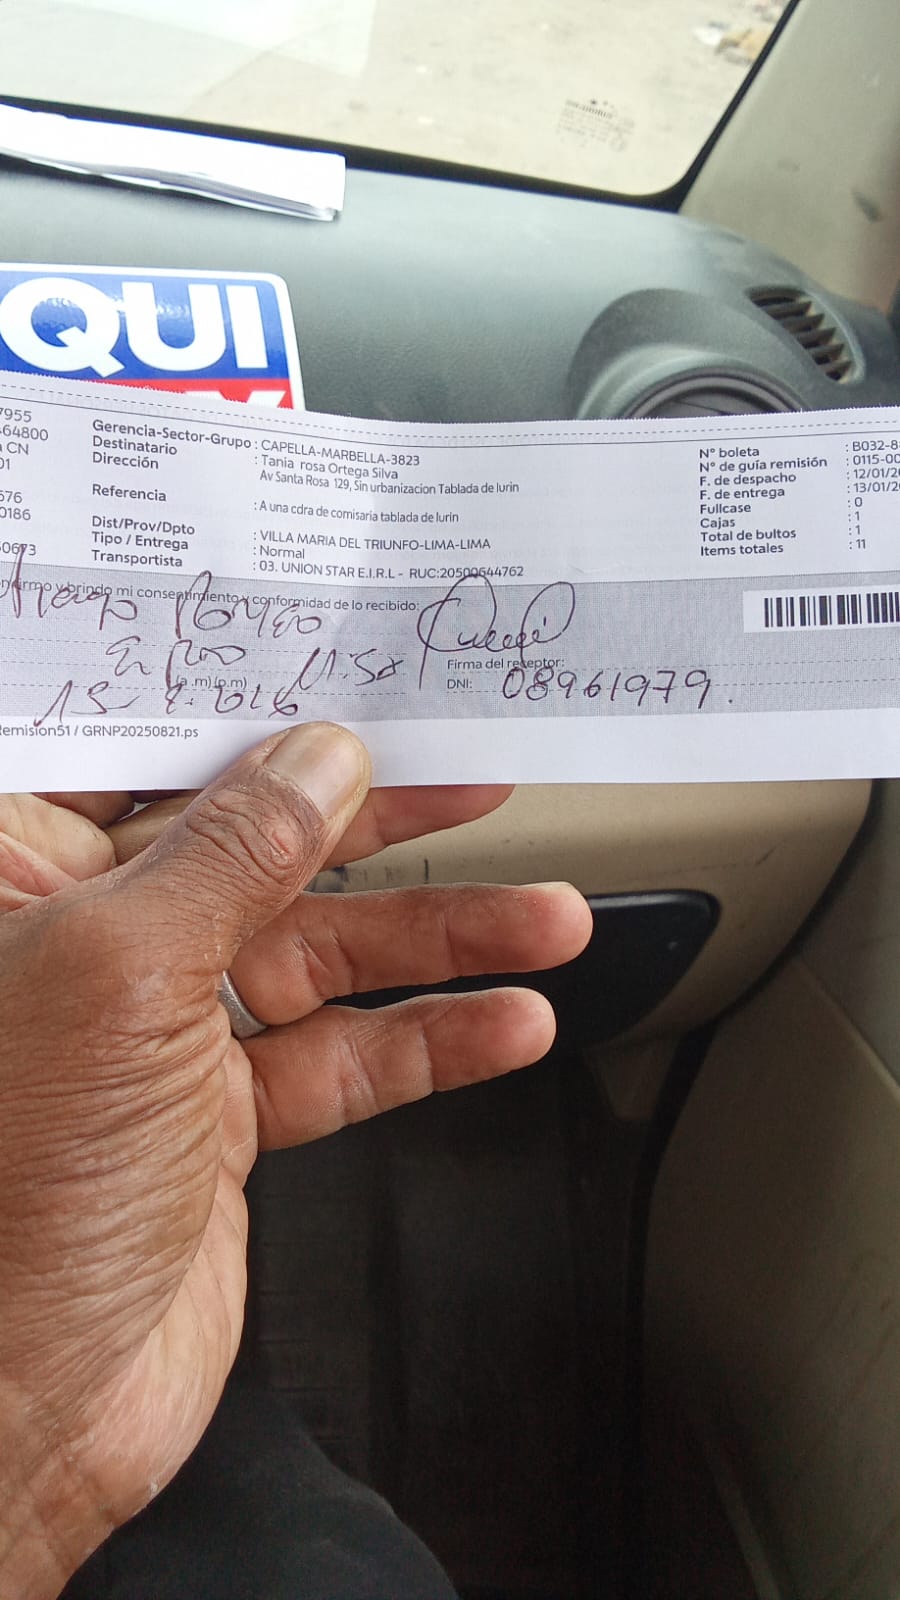 QUI
7955
64800
CN
01
576
0186
Gerencia-Sector-Grupo : CAPELLA-MARBELLA-3823
Destinatario : Tania rosa Ortega Silva
Dirección Av Santa Rosa 129, Sin urbanizacion Tablada de lurin
Referencia : A una cdra de comisaria tablada de lurin
Dist/Prov/Dpto : VILLA MARIA DEL TRIUNFO-LIMA-LIMA
Tipo / Entrega : Normal
Transportista : 03. UNION STAR E.I.R.L - RUC:20500644762
N° boleta : B032-8
N° de guía remisión : 0115-00
F. de despacho : 12/01/20
F. de entrega : 13/01/20
Fullcase : 0
Cajas : 1
Total de bultos : 1
Items totales : 11
y brindo mi consentimiento y conformidad de lo recibido:
(a.m) (p.m)
Firma del receptor:
DNI: 08961979.
emision51 / GRNP20250821.ps